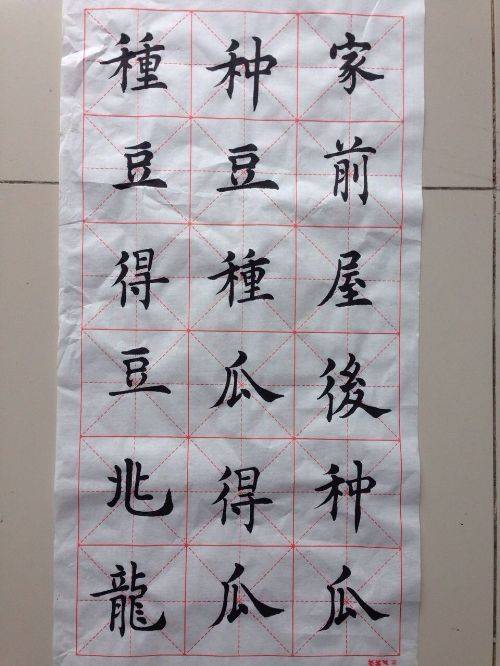 家前屋後种瓜
种豆種瓜得瓜
種豆得豆兆龍